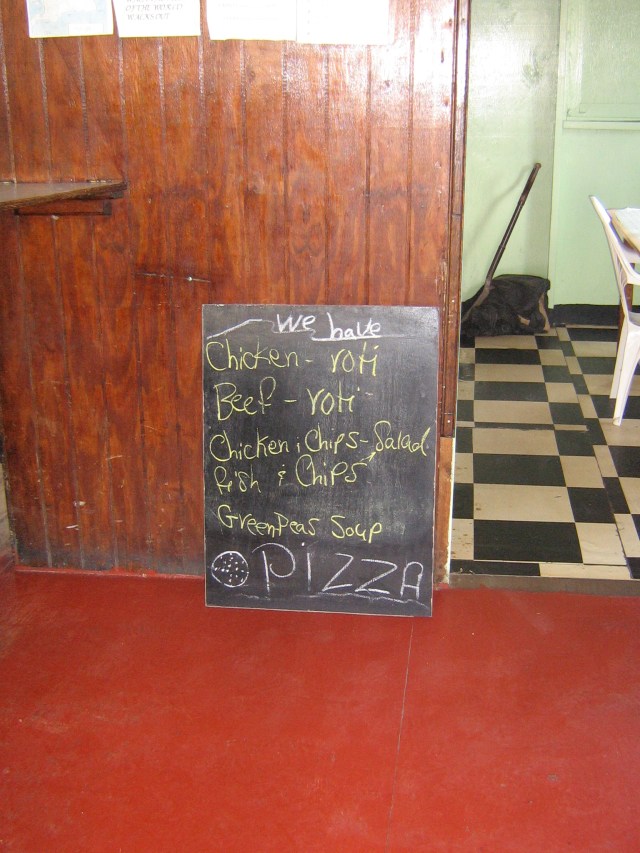 OF THE WORLD
we have
Chicken - roti
Beef - roti
Chicken & Chips - Salad
fish & Chips
Green Peas Soup
PIZZA